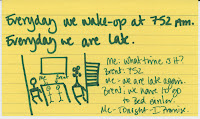 Everyday we wake-up at 7:52 am.
Everyday we are Late.
me Brent
Me: What time is it?
Brent: 7:52
Me: we are late again.
Brent: we have to go
to bed earlier.
Me: Tonight-I Promise.